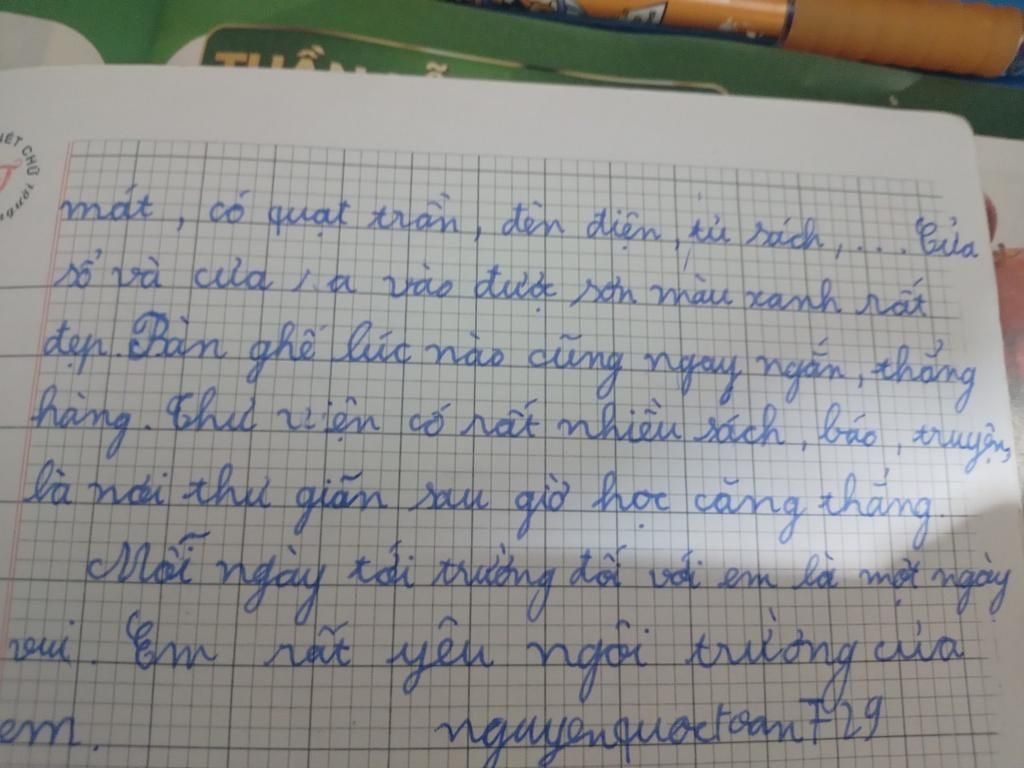 TUẦN
VIẾT CHỮ
mát, có quạt trần, đèn điện, tủ sách,... Cửa
sổ và cửa ra vào được sơn màu xanh rất
đẹp. Bàn ghế lúc nào cũng ngay ngắn, thẳng
hàng. Thư viện có rất nhiều sách, báo, truyện,
là nơi thư giãn sau giờ học căng thẳng.
Mỗi ngày tới trường đối với em là một ngày
vui. Em rất yêu ngôi trường của
em. nguyenquoctoan729